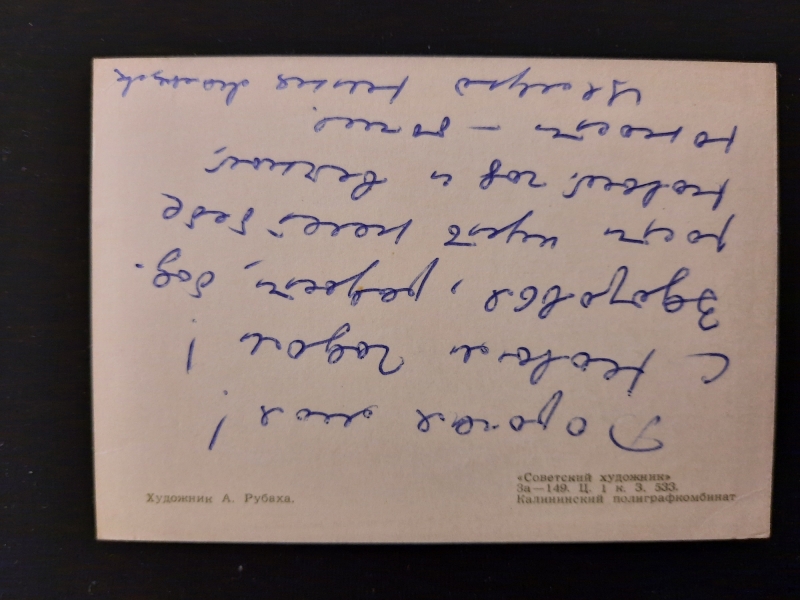 Дорогая моя!
С Новым годом!
Здоровья, радости, бод-
рости пусть несет тебе
Новый год и вечной,
юности –
Целую
Художник А. Рубаха.
«Советский художник»
За—149. Ц. 1 к. З. 533.
Калининский полиграфкомбинат